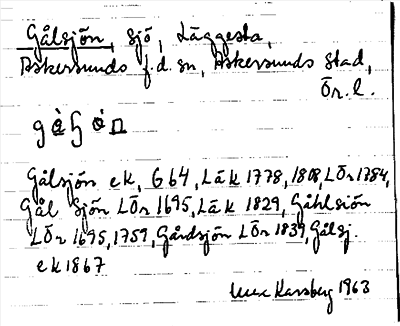 Gålsjön, sjö, Läggesta,
Askersunds f.d. sn, Askersunds stad,
Ör. l.
Gålsjön ek, G64, LÄk 1778, 1808, LÖr 1784,
Gål Sjön LÖr 1695, LÄk 1829, Gåhlsiön
LÖr 1695, 1759, Gårdsjön LÖr 1839, Gålsj.
ek 1867
Karsberg 1963